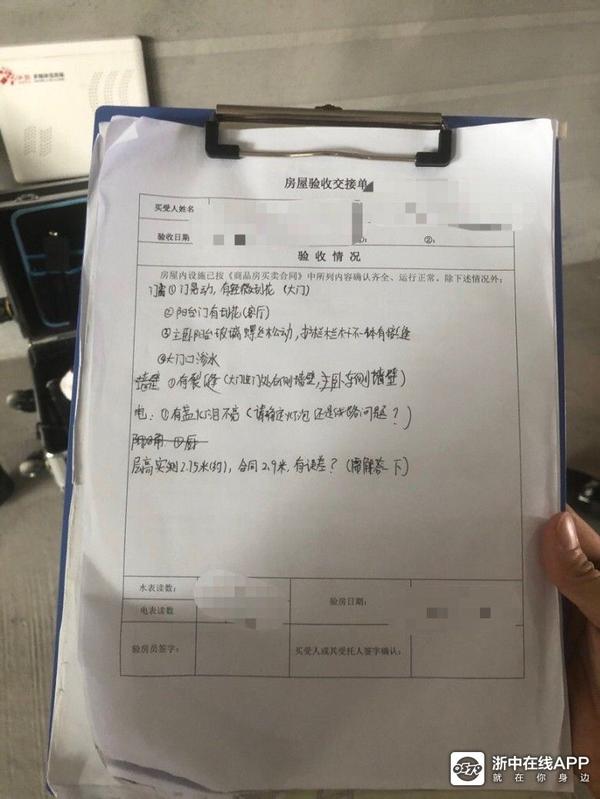 房屋验收交接单
买受人姓名
验收日期 ②:
验收情况
房屋内设施已按《商品房买卖合同》中所列内容确认齐全、运行正常。除下述情况外:
门窗 ①门晃动,有轻微刮花(大门)
②阳台门有刮花(客厅)
③主卧阳台玻璃螺丝松动,护栏栏杆不一体有缝
④大门口渗水
墙壁 ①有裂缝(大门进门处右侧墙壁,主卧右侧墙壁)
电:①有盏灯泪不亮(请确定灯泡还是线路问题?)
层高实测2.75米(约),合同2.9米,有误差?(需解答下)
水表读数: 验房日期:
电表读数
验房员签字: 买受人或其受托人签字确认:
浙中在线APP
就在你身边